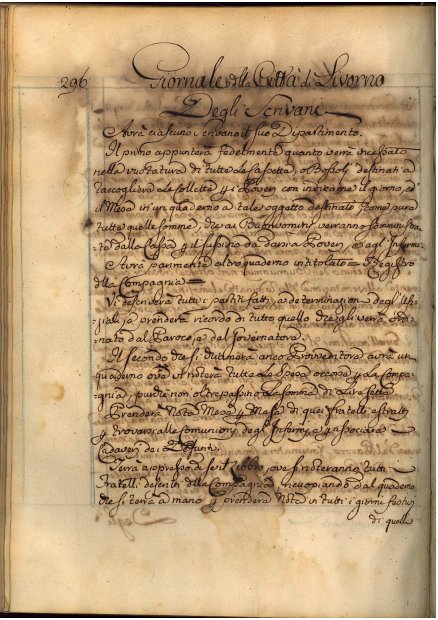 296 Giornale della Città di Livorno
Degli Scrivani
Avrà ciascuno Scrivano il suo Dipartimento.
Il primo appunterà fedelmente quanto verrà incassato
nella vuotatura di tutte le Cassette, o Bossoli destinati a
raccogliere le Collette p i Poveri con indicarne il giorno, ed
il Mese in un quaderno a tale oggetto destinato, come pure
tutte quelle somme, che ai Buonuomini verranno somministra
te dalla Cassa p il sussidio da darsi a Poveri, o agl'Infermi.
Avrà parimente altro quaderno intitolato = Registro
della Compagnia =
Vi descriverà tutti i partiti fatti, e determinazioni degl'Uffi
ziali, e prenderà ricordo di tutto quello che gli verrà ordi
nato dal Paroco, e dal Governatore.
Il secondo che si chiamerà anco Provveditore avrà un
quaderno ove noterà tutte le spese occorse p la Compa
gnia, purchè non oltrepassino la somma di Lire sette
Prenderà Nota Mese p Mese di quei fratelli estratti
p trovarsi alle comunioni degl'Infermi, e p associare
Cadaveri dei Defunti.
Terrà appresso di se il libro, ove si noteranno tutti
Fratelli descritti della Compagnia ricopiando dal quaderno
che si terrà a mano, e prenderà Nota in tutti i giorni festivi
di quelli